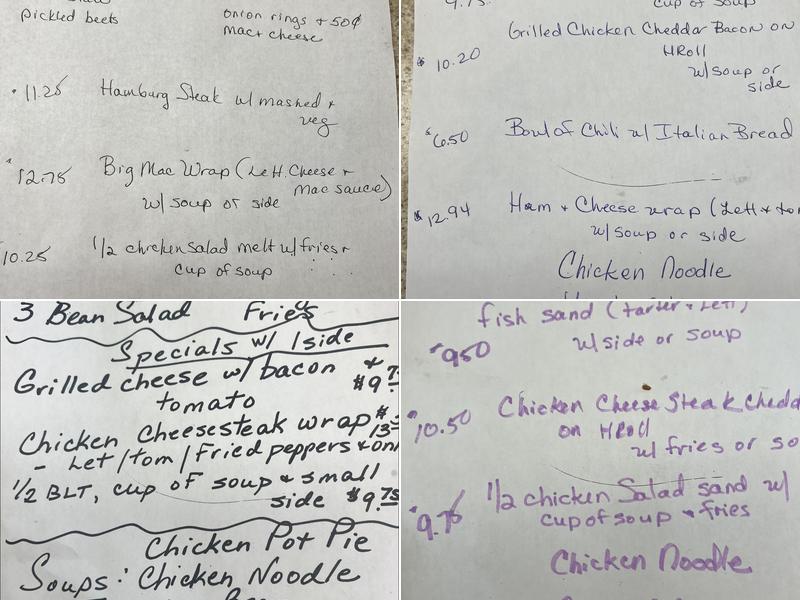 pickled beets
onion rings + 50¢
mac + cheese
$11.25 Hamburg Steak w/ mashed +
veg
$12.75 Big Mac Wrap (Lett. Cheese +
Mac sauce)
w/ soup or side
10.25 1/2 chicken salad melt w/ fries +
cup of soup
9.75
cup of soup
Grilled Chicken Cheddar Bacon on
$10.20 HRoll
w/ soup or
side
$6.50 Bowl of Chili w/ Italian Bread
$12.94 Ham + Cheese wrap (Lett + tom
w/ soup or side
Chicken Noodle
3 Bean Salad Fries
Specials w/ 1 side
Grilled cheese w/ bacon +
tomato $9.7
Chicken Cheesesteak wrap $
13
- Let/tom/Fried peppers + oni
1/2 BLT, cup of soup + small
side $9.75
Chicken Pot Pie
Soups: Chicken Noodle
fish sand (tarter + Lett)
$9.50 w/ side or soup
Chicken Cheese Steak Chedd
$10.50 on HRoll
w/ fries or so
1/2 chicken Salad sand w/
$9.75 cup of soup + fries
Chicken Noodle